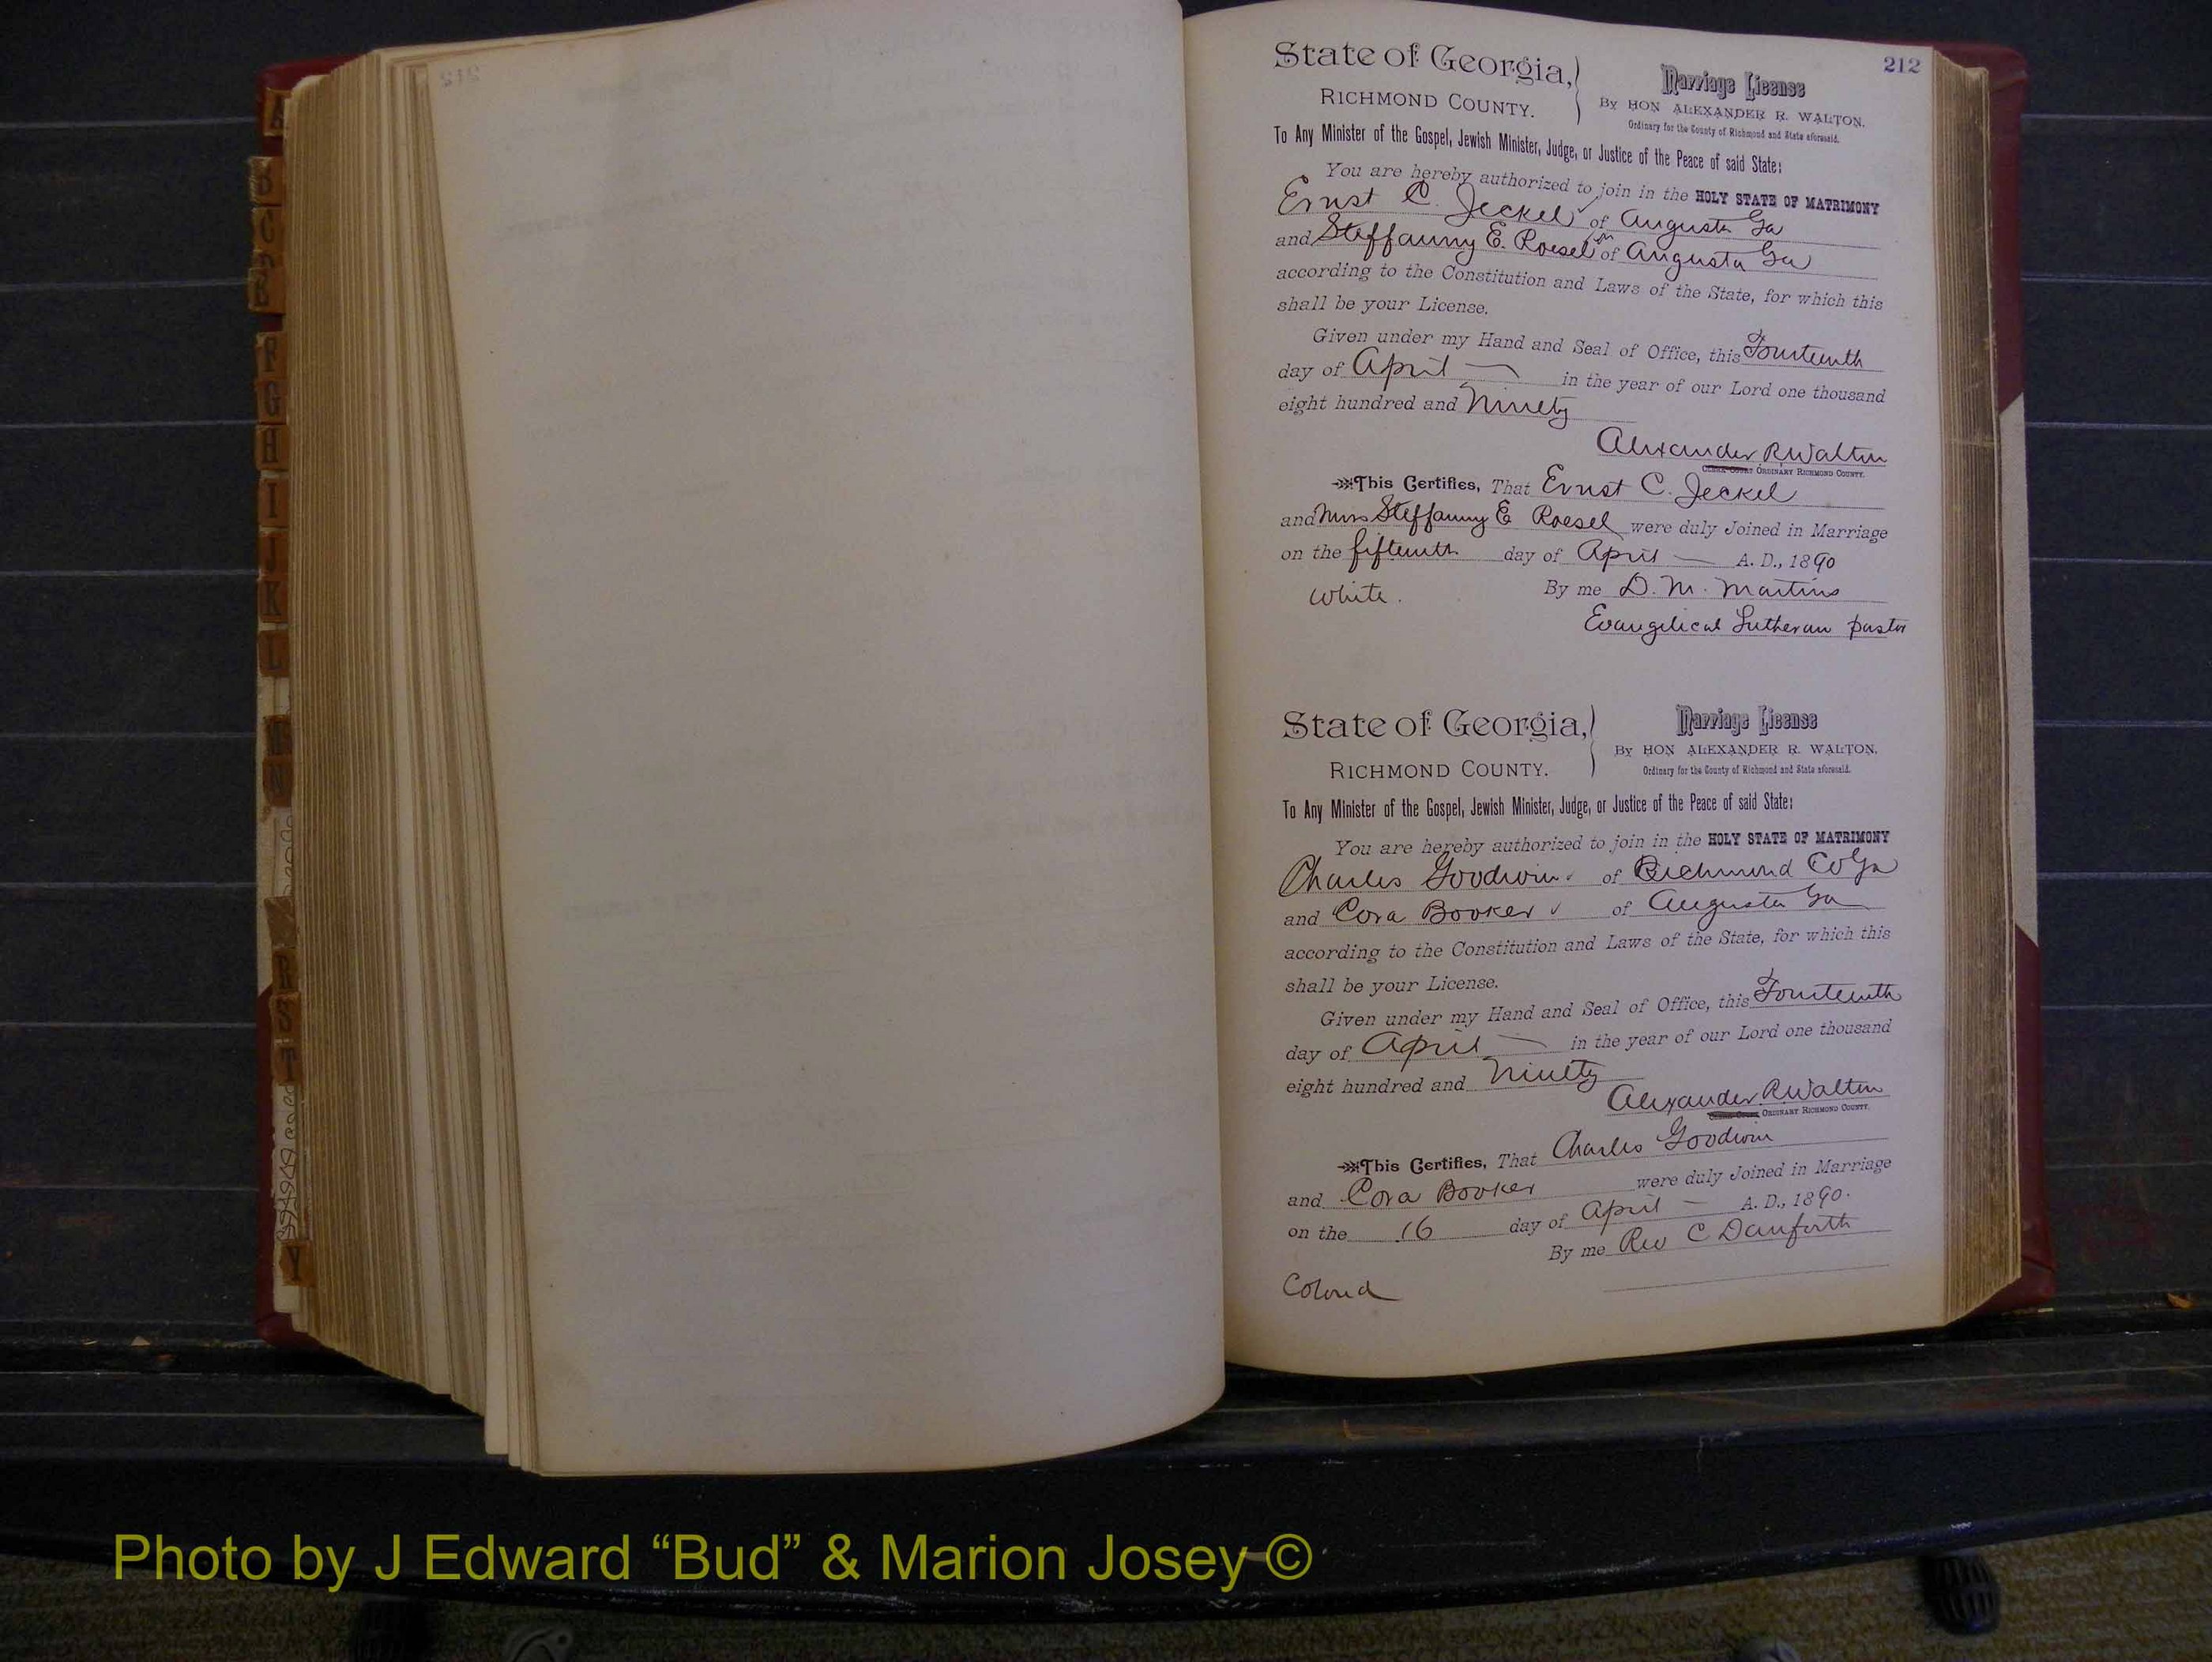 212
State of Georgia,
RICHMOND COUNTY.
Marriage License
By HON ALEXANDER R. WALTON,
Ordinary for the County of Richmond and State aforesaid.
To Any Minister of the Gospel, Jewish Minister, Judge, or Justice of the Peace of said State:
You are hereby authorized to join in the HOLY STATE OF MATRIMONY
Ernst C. Jeckel of Augusta Ga
and Steffanny E. Roesel of Augusta Ga
according to the Constitution and Laws of the State, for which this
shall be your License.
Given under my Hand and Seal of Office, this Fourteenth
day of April in the year of our Lord one thousand
eight hundred and Ninety
Alexander R Walton
ORDINARY RICHMOND COUNTY.
This Certifies, That Ernst C. Jeckel
and Miss Steffanny E Roesel were duly Joined in Marriage
on the fifteenth day of April A. D., 1890
white. By me D. M. Martins
Evangilical Lutheran pastor
State of Georgia,
RICHMOND COUNTY.
Marriage License
By HON ALEXANDER R. WALTON,
Ordinary for the County of Richmond and State aforesaid.
To Any Minister of the Gospel, Jewish Minister, Judge, or Justice of the Peace of said State:
You are hereby authorized to join in the HOLY STATE OF MATRIMONY
Charles Goodwin of Richmond Co Ga
and Cora Booker of Augusta Ga
according to the Constitution and Laws of the State, for which this
shall be your License.
Given under my Hand and Seal of Office, this Fourteenth
day of April in the year of our Lord one thousand
eight hundred and Ninety
Alexander R Walton
ORDINARY RICHMOND COUNTY.
This Certifies, That Charles Goodwin
and Cora Booker were duly Joined in Marriage
on the 16 day of April A. D., 1890.
By me Rev C Danforth
Colored
A
B
C
E
F
G
H
I
J
K
L
N
R
S
T
Y
Photo by J Edward “Bud” & Marion Josey ©